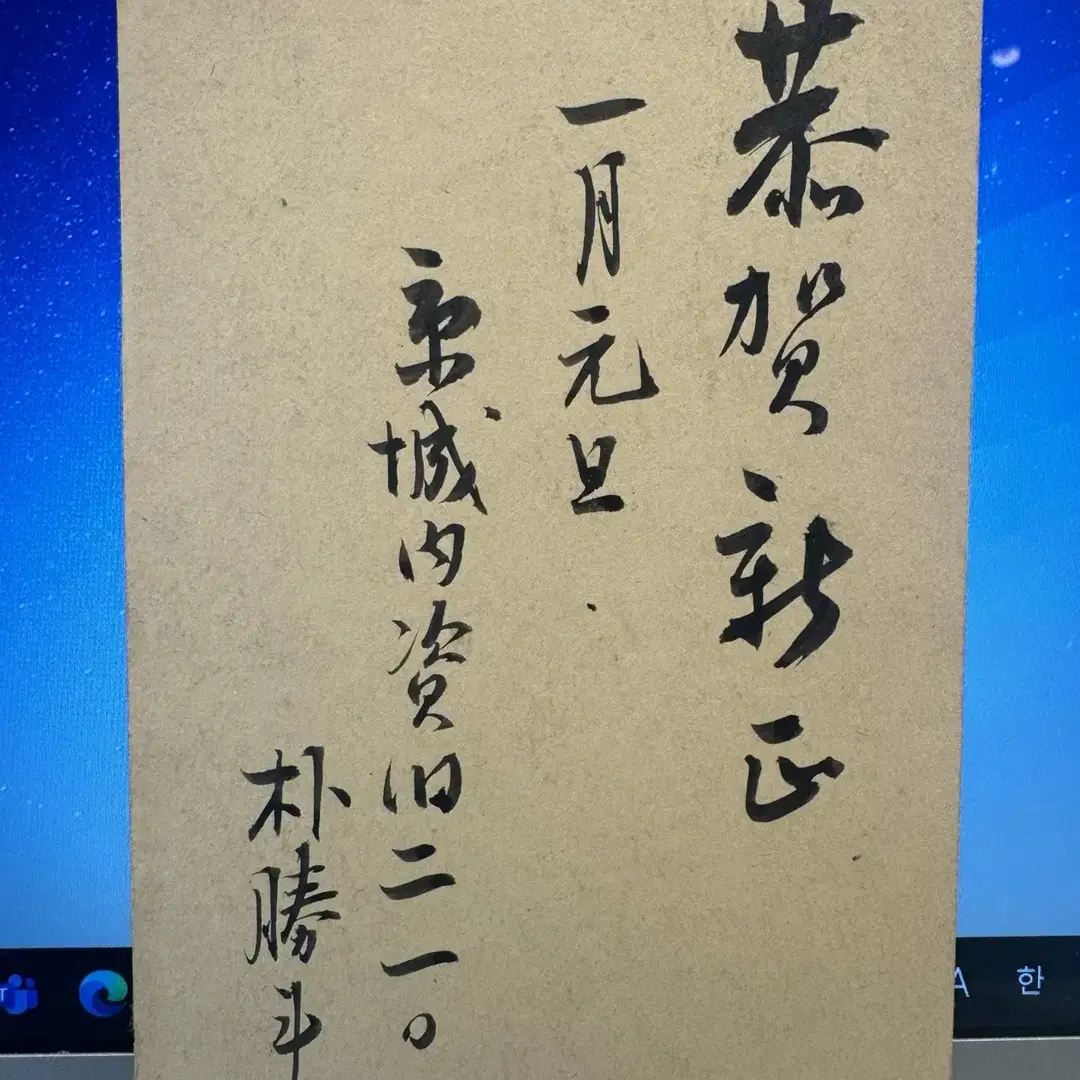 恭賀新正
一月元旦
京城内資旧二一〇
朴勝斗
A
한